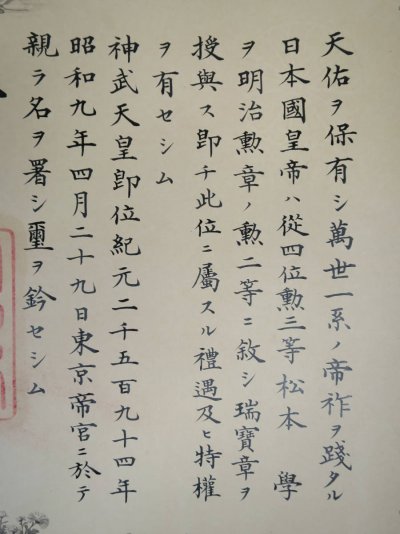 天佑ヲ保有シ萬世一系ノ帝祚ヲ踐タル
日本國皇帝ハ從四位勲三等松本 學
ヲ明治勲章ノ勲二等ニ敘シ瑞寶章ヲ
授與ス即チ此位ニ屬スル禮遇及ヒ特權
ヲ有セシム
神武天皇即位紀元二千五百九十四年
昭和九年四月二十九日東京帝宮ニ於テ
親ラ名ヲ署シ璽ヲ鈐セシム